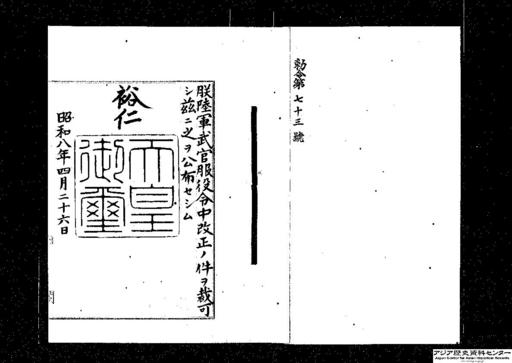 勅令第七十三號
朕陸軍武官服役令中改正ノ件ヲ裁可
シ茲ニ之ヲ公布セシム
裕仁
天皇
御璽
昭和八年四月二十六日
アジア歴史資料センター
Japan Center for Asian Historical Records